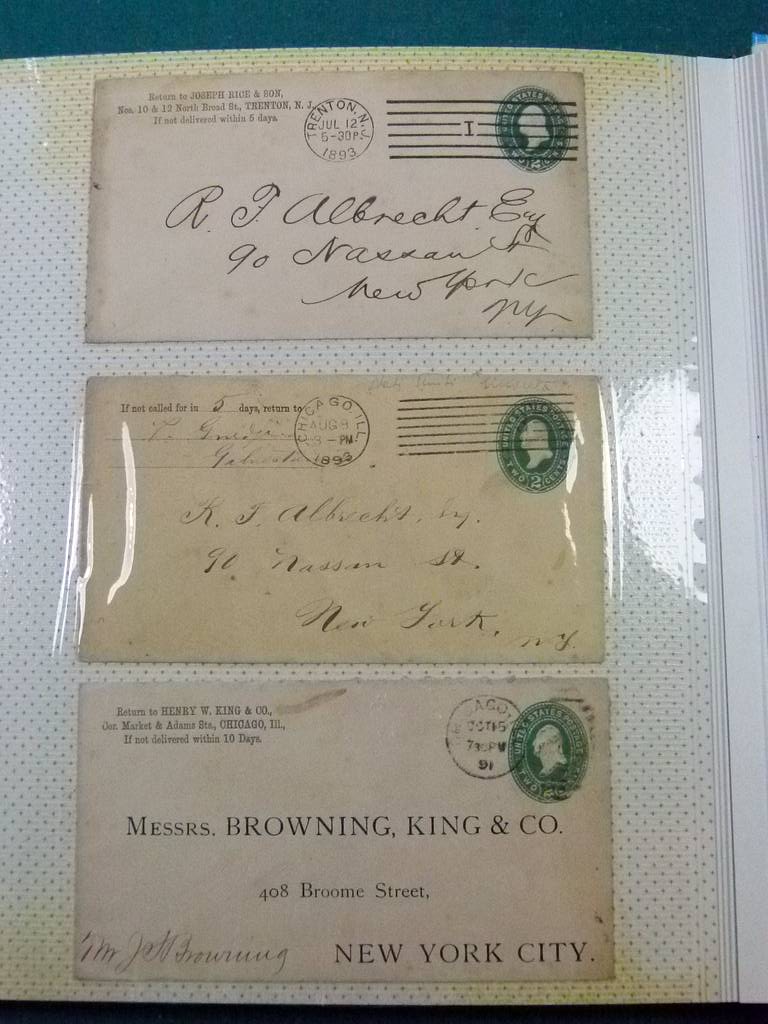 Return to JOSEPH RICE & SON,
Nos. 10 & 12 North Broad St., TRENTON, N. J.
If not delivered within 5 days.
TRENTON, N.J.
JUL 12
5-30P
1893
I
UNITED STATES POSTAGE
TWO 2 CENTS
R. F. Albrecht Esq
90 Nassau St
New York
NY.
If not called for in 5 days, return to
CHICAGO, ILL.
AUG 9
8-PM
1893
UNITED STATES POSTAGE
TWO 2 CENTS
R. F. Albrecht, Esq.
90 Nassau St.
New York,
N.Y.
Return to HENRY W. KING & CO.,
Cor. Market & Adams Sts., CHICAGO, Ill.,
If not delivered within 10 Days.
CHICAGO,
OCT 15
730PM
91
UNITED STATES POSTAGE
TWO
MESSRS. BROWNING, KING & CO.
408 Broome Street,
Mr J. H Browning
NEW YORK CITY.